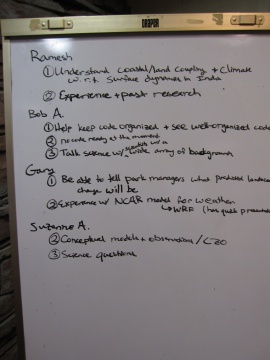 DRAPER
Ramesh
① Understand coastal/land coupling + climate
w.r.t. surface dynamics in India
② Experience + past research
Bob A.
① Help keep code organized + see well-organized code
② no code ready at the moment
③ Talk science w/ wide array of background
Gary
① Be able to tell park managers what predicted landscape
change will be
② Experience w/ NCAR model for weather
↳ WRF (has quick
Suzanne A.
② Conceptual models + observations / CZO
③ Science questions